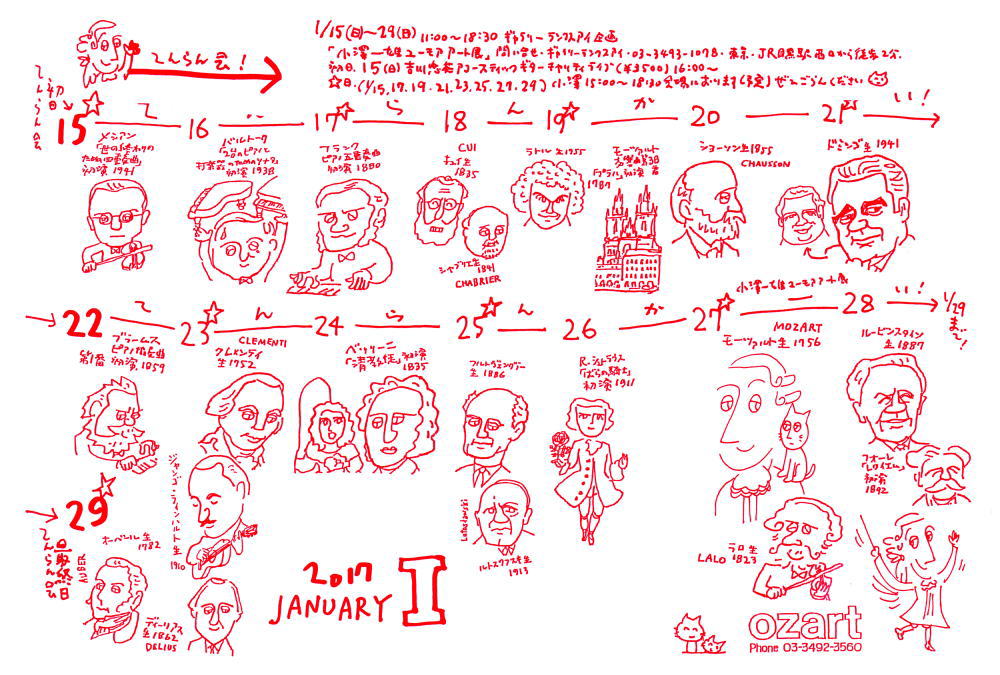 1/15(日)〜29(日) 11:00〜18:30 ギャラリー テンスアイ企画
「小澤一雄ユーモアアート展」問い合せ・ギャラリーテンスアイ・03-3493-1078・東京・JR目黒駅西口から徒歩2分
初日.15(日)
アコースティックギターチャリティライブ(¥3500)16:00〜
☆日.(1/15,17.19.21.23.25.27.29)小澤15:00〜18:30会場におります(予定)ぜひごらんください
てんらん会!
てんらん会
初日
15 て 16 ん 17 ら 18 ん 19 か 20 21 い!
メシアン
「世の終わりの
ための四重奏曲」
初演1941
バルトーク
「2台のピアノと
打楽器のためのソナタ」
初演1938
フランク
ピアノ五重奏曲
初演1880
CUI
キュイ生
1835
シャブリエ生
1841
CHABRIER
ラトル生1955
モーツァルト
交響曲第38番
「プラハ」初演
1787
ショーソン生1855
CHAUSSON
ドミンゴ生1941
小澤一雄ユーモアアート展
22 て 23 ん 24 ら 25 ん 26 か 27 28 い!
1/29まで!
ブラームス
ピアノ協奏曲
第1番 初演1859
CLEMENTI
クレメンティ
生1752
ベッリーニ
「清教徒」初演
1835
フルトヴェングラー
生1886
R.シュトラウス
「ばらの騎士」
初演1911
MOZART
モーツァルト生1756
ルービンスタイン
生1887
ジャンゴ・ラインハルト生
1910
Lutosławski
ルトスワフスキ生
1913
フォーレ
「レクイエム」
初演
1892
LALO
ラロ生
1823
29
てんらん会
最終日
オーベール生
1782
AUBER
ディーリアス
生1862
DELIUS
2017
JANUARY
1
ozart
Phone 03-3492-3560